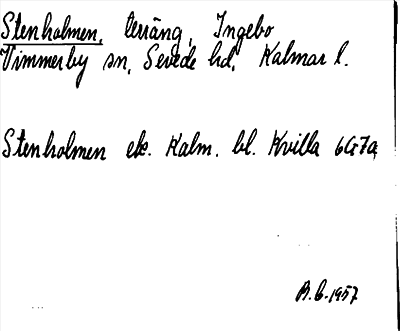 Stenholmen, terräng, Ingebo
Vimmerby sn, Sevede hd, Kalmar l.
Stenholmen ek. Kalm. bl. Kvilla 6G7a
B.L. 1957